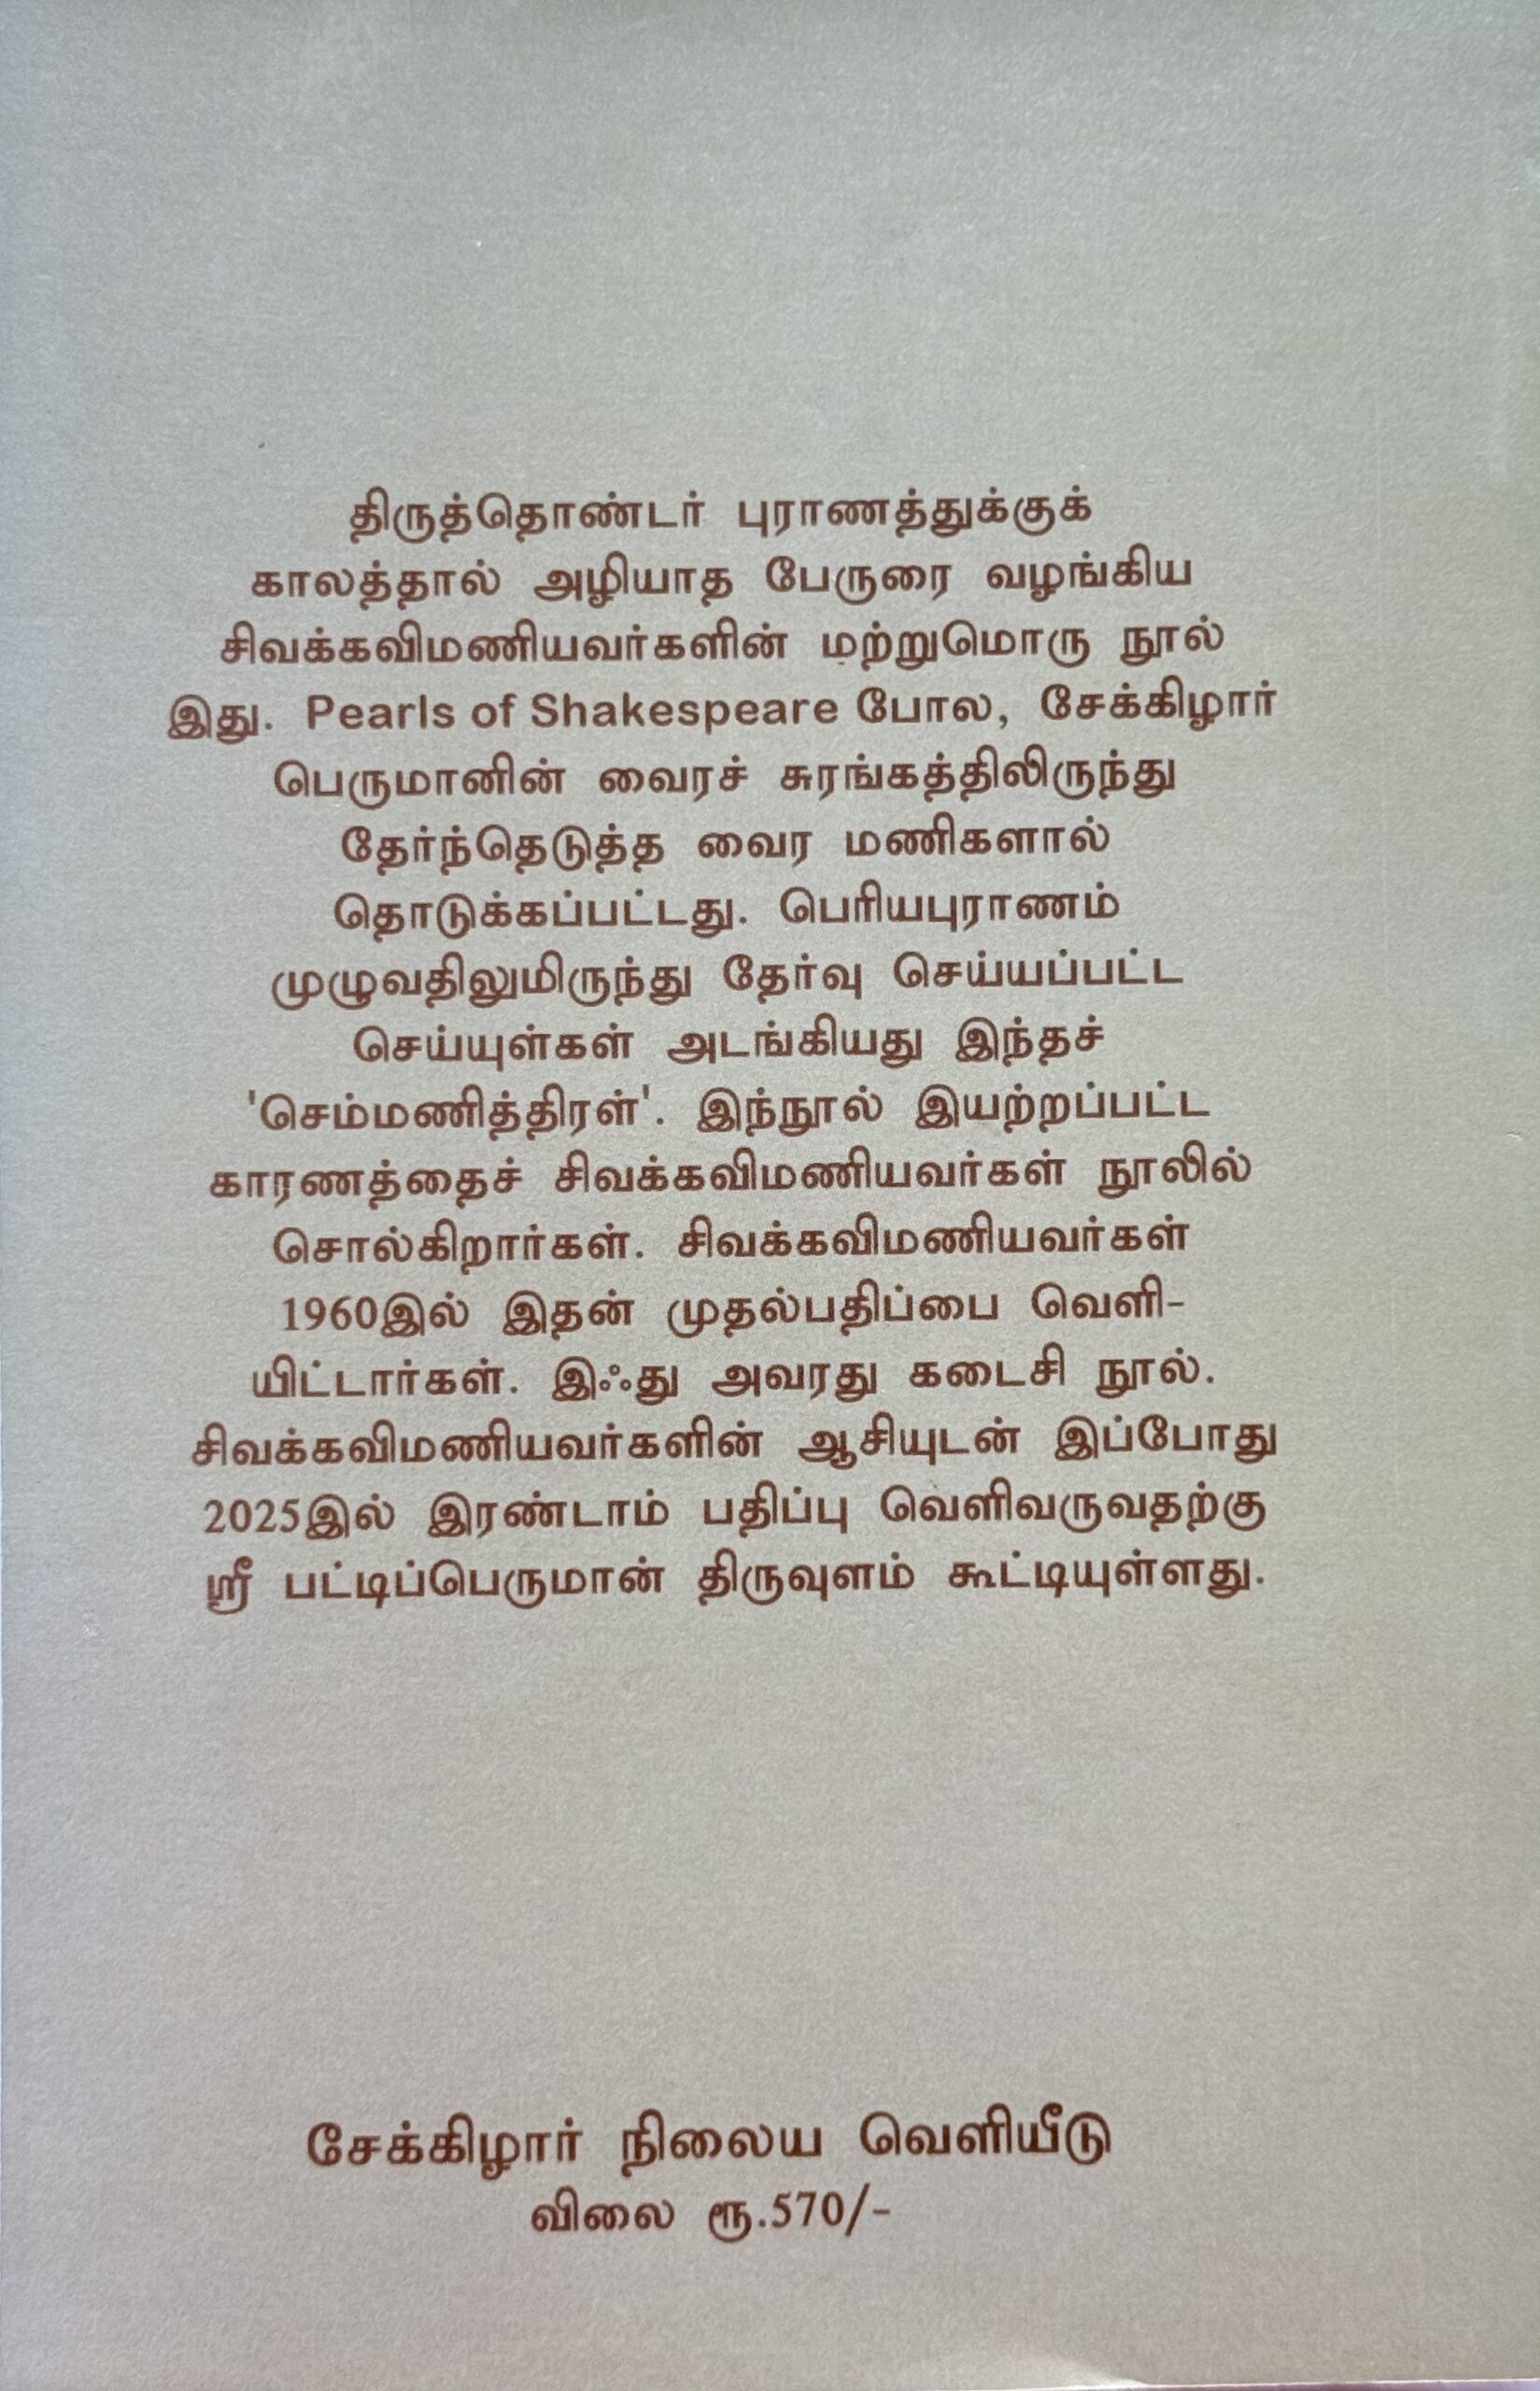 திருத்தொண்டர் புராணத்துக்குக்
காலத்தால் அழியாத பேருரை வழங்கிய
சிவக்கவிமணியவர்களின் மற்றுமொரு நூல்
இது. Pearls of Shakespeare போல, சேக்கிழார்
பெருமானின் வைரச் சுரங்கத்திலிருந்து
தேர்ந்தெடுத்த வைர மணிகளால்
தொடுக்கப்பட்டது. பெரியபுராணம்
முழுவதிலுமிருந்து தேர்வு செய்யப்பட்ட
செய்யுள்கள் அடங்கியது இந்தச்
'செம்மணித்திரள்'. இந்நூல் இயற்றப்பட்ட
காரணத்தைச் சிவக்கவிமணியவர்கள் நூலில்
சொல்கிறார்கள். சிவக்கவிமணியவர்கள்
1960இல் இதன் முதல்பதிப்பை வெளி-
யிட்டார்கள். இஃது அவரது கடைசி நூல்.
சிவக்கவிமணியவர்களின் ஆசியுடன் இப்போது
2025இல் இரண்டாம் பதிப்பு வெளிவருவதற்கு
ஸ்ரீ பட்டிப்பெருமான் திருவுளம் கூட்டியுள்ளது.
சேக்கிழார் நிலைய வெளியீடு
விலை ரூ.570/-